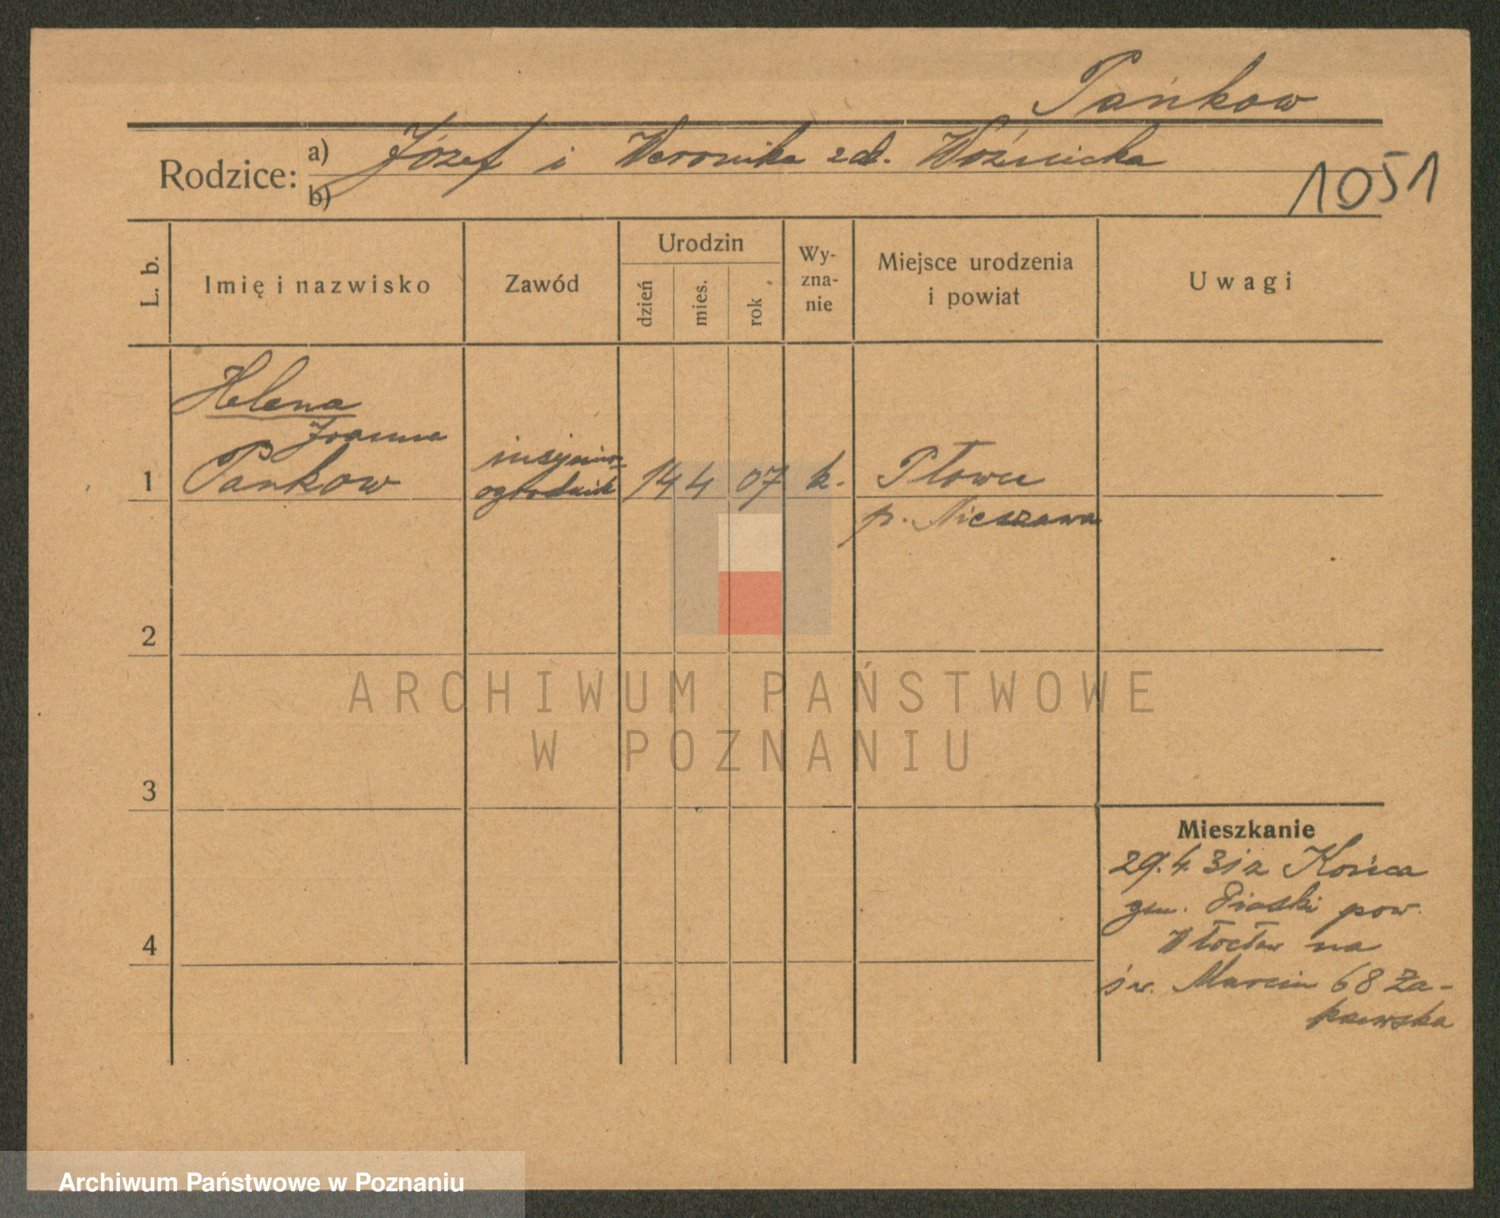 Pańkow
Rodzice: a) Józef i Weronika zd. Woźnicka
b)
1051
L. b.
Imię i nazwisko
Zawód
Urodzin
dzień
mies.
rok
Wy-
zna-
nie
Miejsce urodzenia
i powiat
Uwagi
Helena
Joanna
1 Pankow
ogrodnik
14 4 07 k.
p. Nieszawa
2
3
4
ARCHIWUM PAŃSTWOWE
W POZNANIU
Mieszkanie
29.4.31 z Końca
gm. Piaski pow.
Włocław na
św. Marcin 68 Za-
Archiwum Państwowe w Poznaniu